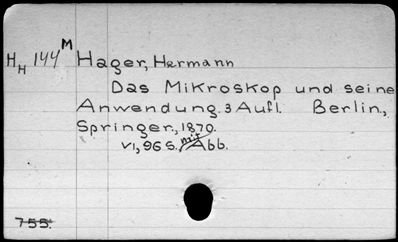 H_H 144 M Hager, Hermann
Das Mikroskop und seine
Anwendung. 3 Aufl. Berlin,
Springer, 1870.
VI, 96 S. mit Abb.
755.